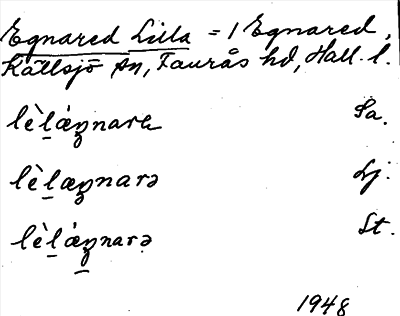 Egnared Lilla = 1 Egnared,
Källsjö sn, Faurås hd, Hall. l.
lèlǽŋnarə Sa.
lèlæŋnarə Lj.
lèlǽŋnarə St.
1948